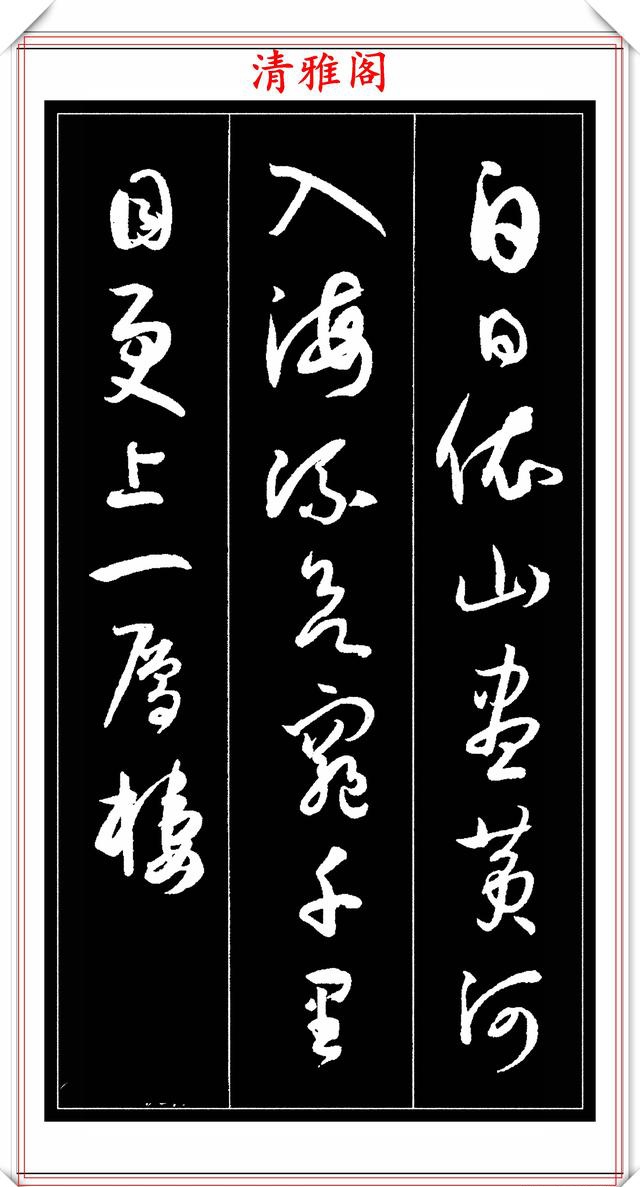 清雅阁
白日依山尽黄河
入海流欲穷千里
目更上一层楼